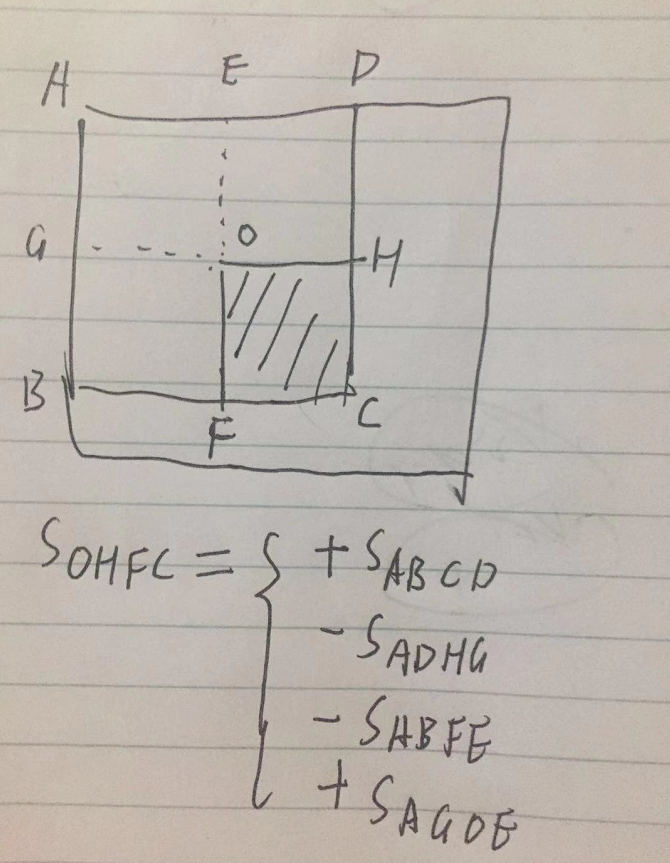 A E D
G O H
B F C
SOHFC = { + SABCD
- SADHG
- SABFE
+ SAGOE